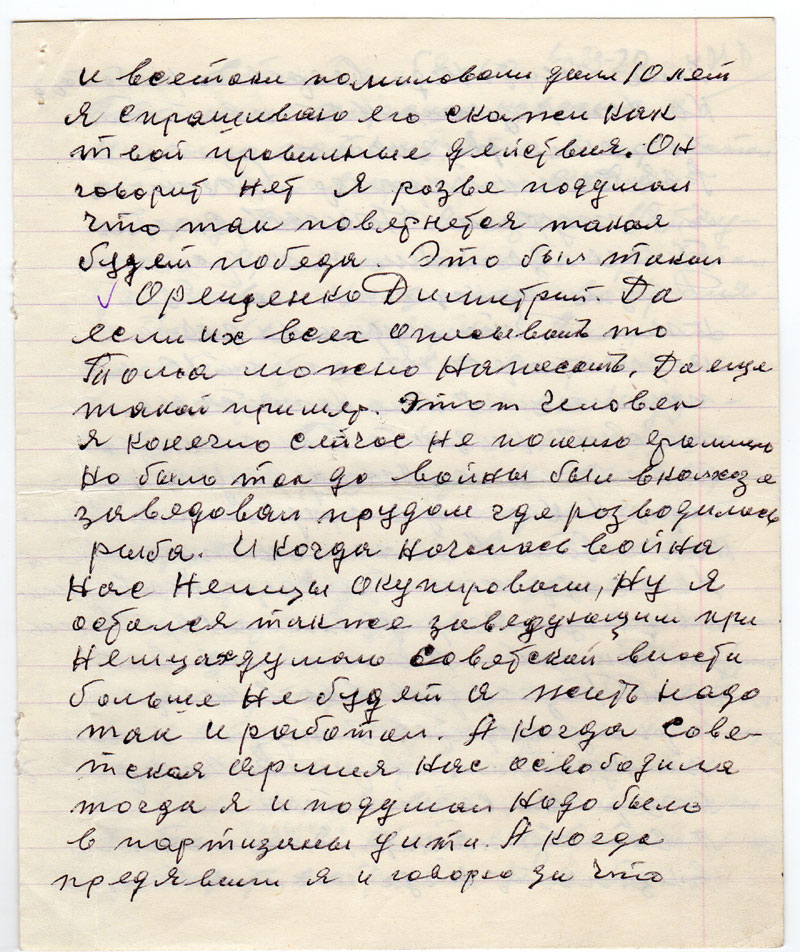 и всетаки помиловали дали 10 лет
я спрашиваю его скажи как
твои провильные действия. Он
говорит нет я розве поддумал
что так повернется такая
будет победа. Это был такой
Орещенко Димитрий. Да
если их всех описывать то
Тольа можно написать. Да еще
такой пример. Этот человек
я конечно сейчас не помню
но было так до войны был в колхозе
заведовал прудом где розводилась
рыба. И когда началась война
Нас Немцы окупировали, Ну я
остался также заведующим при
Немцах думаю Советской власти
больше не будет а жить надо
так и работал. А когда Сове-
тская армия нас освободила
тогда я и поддумал надо было
в партизаны уйти. А когда
предявили я и говорю за что